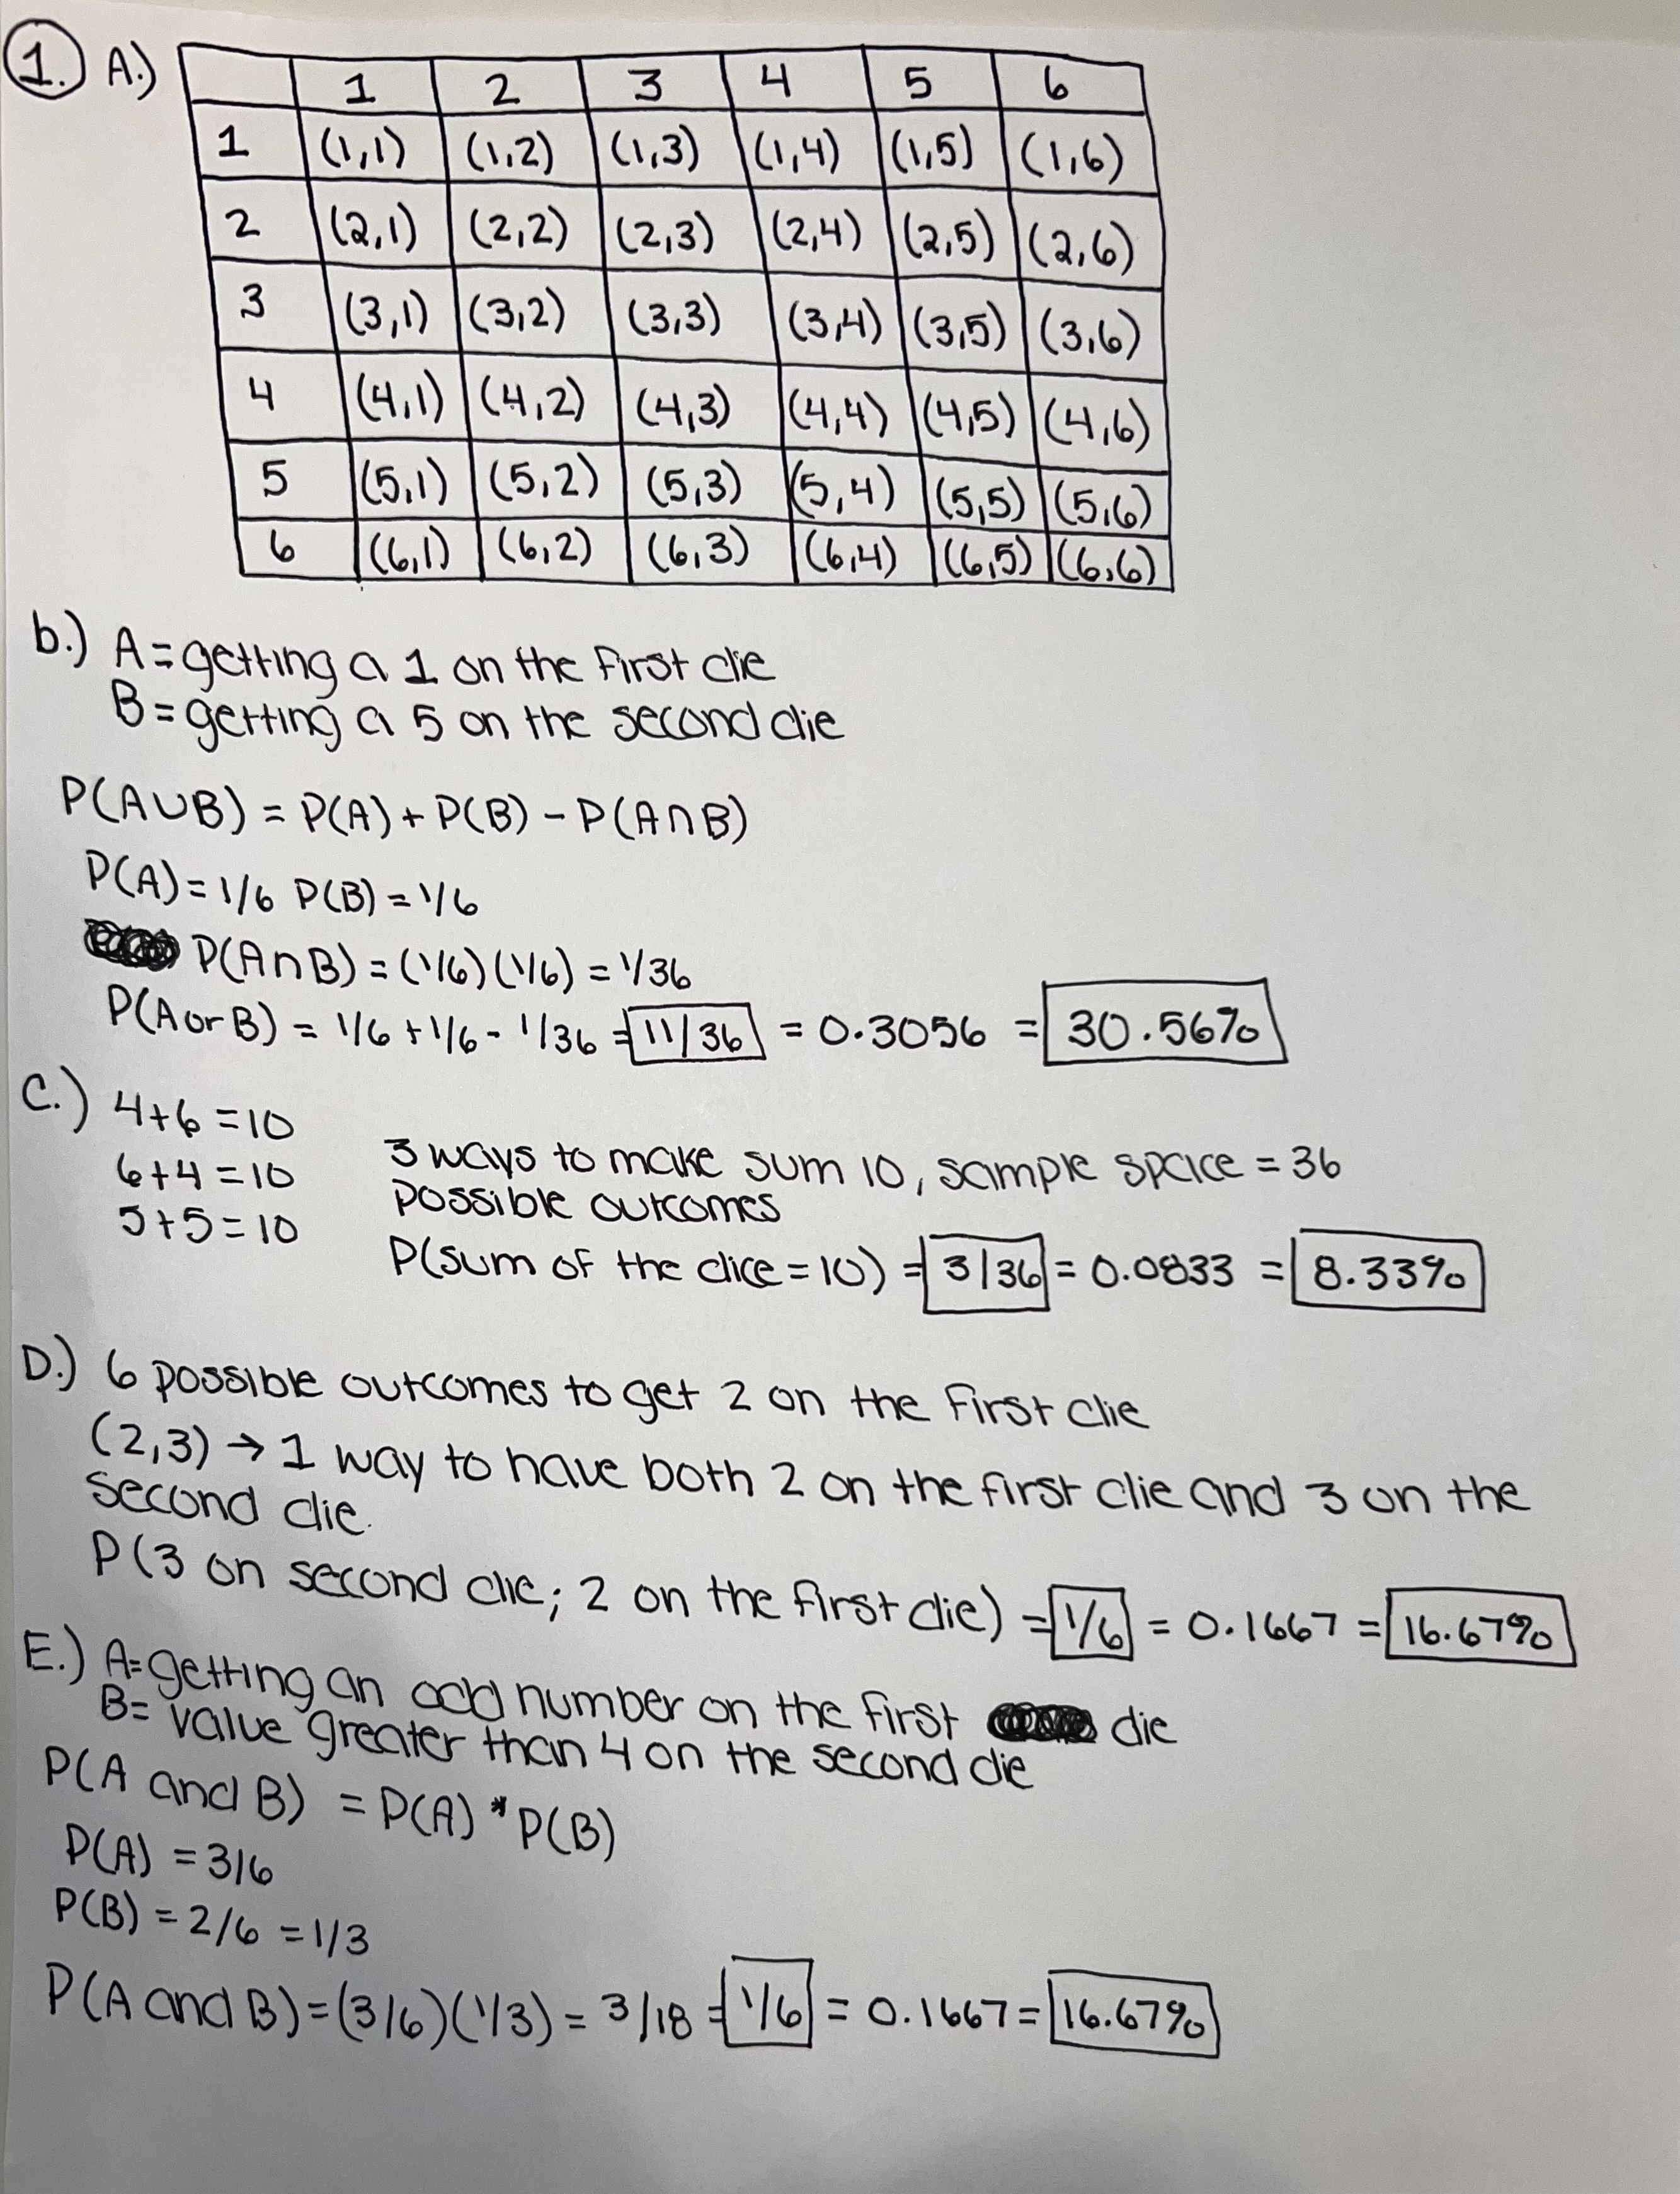 1. A.)
1 2 3 4 5 6
1 (1,1) (1,2) (1,3) (1,4) (1,5) (1,6)
2 (2,1) (2,2) (2,3) (2,4) (2,5) (2,6)
3 (3,1) (3,2) (3,3) (3,4) (3,5) (3,6)
4 (4,1) (4,2) (4,3) (4,4) (4,5) (4,6)
5 (5,1) (5,2) (5,3) (5,4) (5,5) (5,6)
6 (6,1) (6,2) (6,3) (6,4) (6,5) (6,6)
b.) A = getting a 1 on the first die
B = getting a 5 on the second die
P(A∪B) = P(A) + P(B) - P(A∩B)
P(A) = 1/6 P(B) = 1/6
P(A∩B) = (1/6)(1/6) = 1/36
P(A or B) = 1/6 + 1/6 - 1/36 = 11/36 = 0.3056 = 30.56%
C.) 4+6 = 10
6+4 = 10
5+5 = 10
3 ways to make sum 10, sample space = 36
possible outcomes
P(sum of the dice = 10) = 3/36 = 0.0833 = 8.33%
D.) 6 possible outcomes to get 2 on the first die
(2,3) → 1 way to have both 2 on the first die and 3 on the
second die.
P(3 on second die; 2 on the first die) = 1/6 = 0.1667 = 16.67%
E.) A = getting an odd number on the first die
B = value greater than 4 on the second die
P(A and B) = P(A) * P(B)
P(A) = 3/6
P(B) = 2/6 = 1/3
P(A and B) = (3/6)(1/3) = 3/18 = 1/6 = 0.1667 = 16.67%